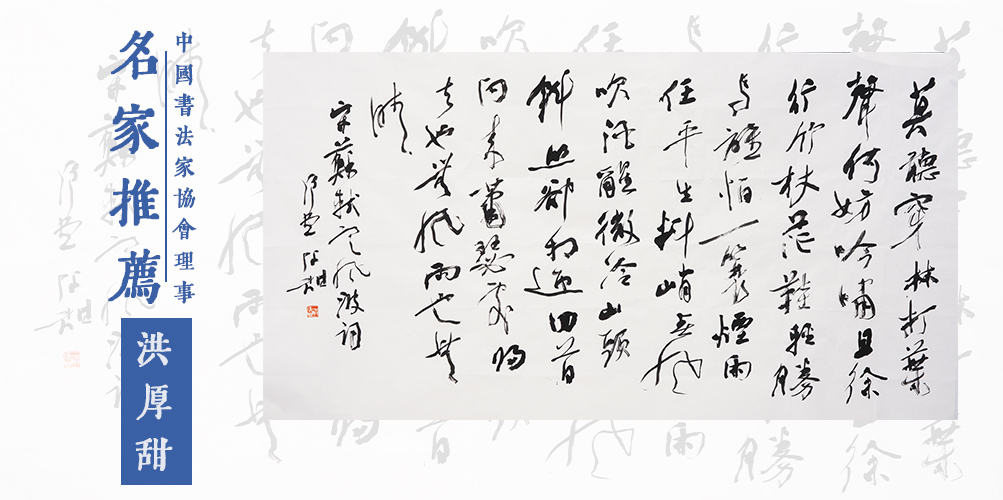 中國書法家協會理事
名家推薦
洪厚甜
莫聽穿林打葉
聲何妨吟嘯且徐
行竹杖芒鞋輕勝
馬誰怕一蓑煙雨
任平生料峭春風
吹酒醒微冷山頭
斜照卻相迎回首
向來蕭瑟處歸
去也無風雨也無
晴
宋蘇軾定風波詞
厚甜